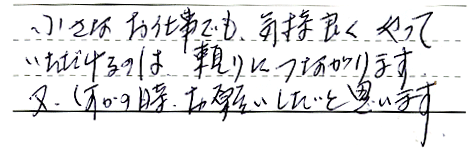 小さなお仕事でも、気持良くやって
いただけるのは 頼りにつながります
又、何かの時、お願いしたいと思います